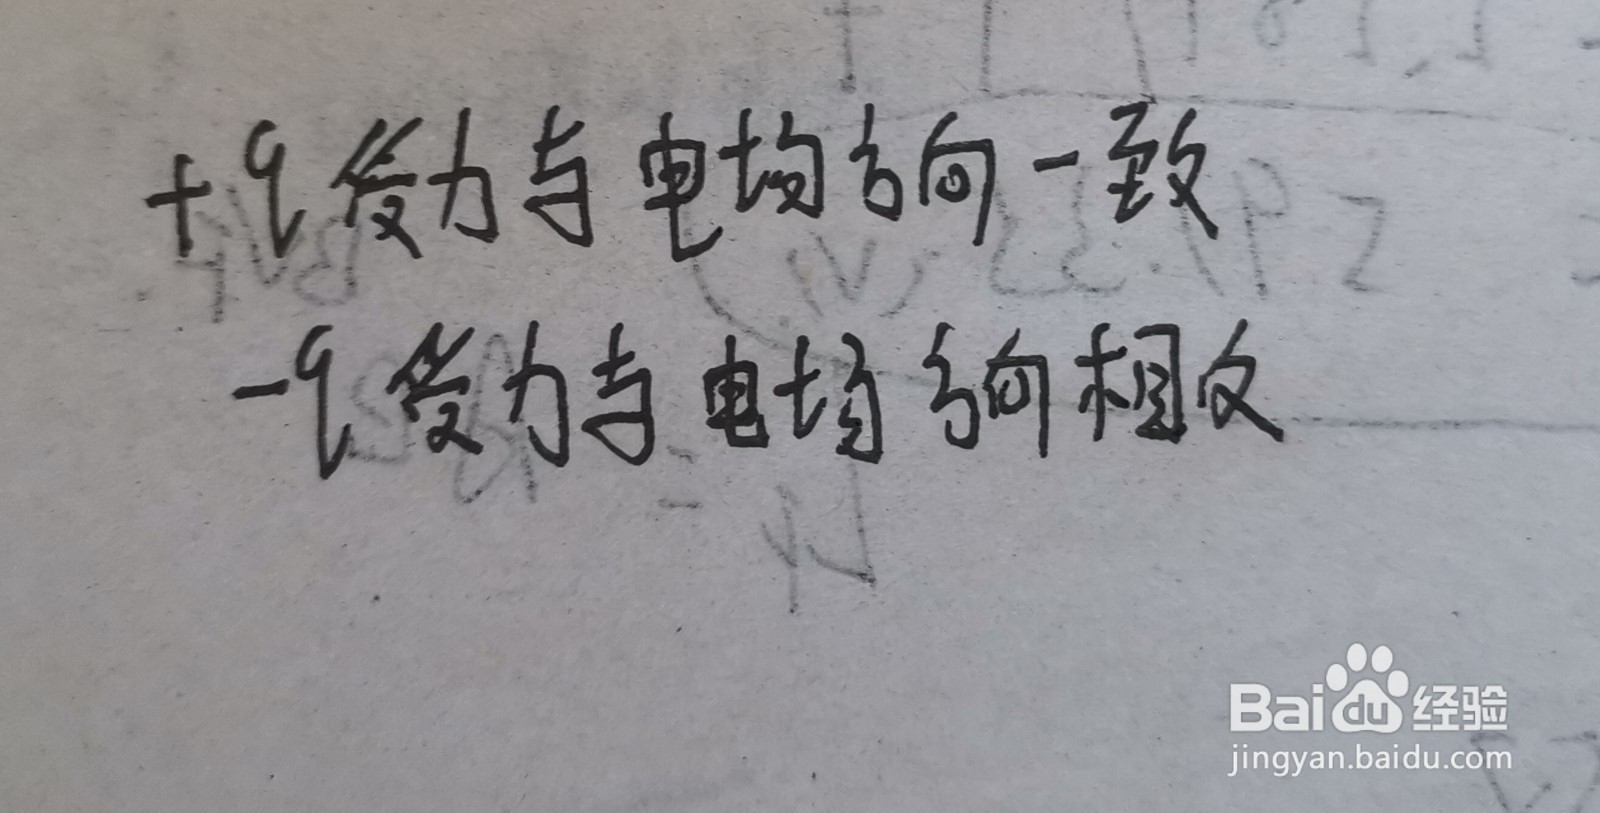 +q受力与电场方向一致
-q受力与电场方向相反
Baidu经验
jingyan.baidu.com